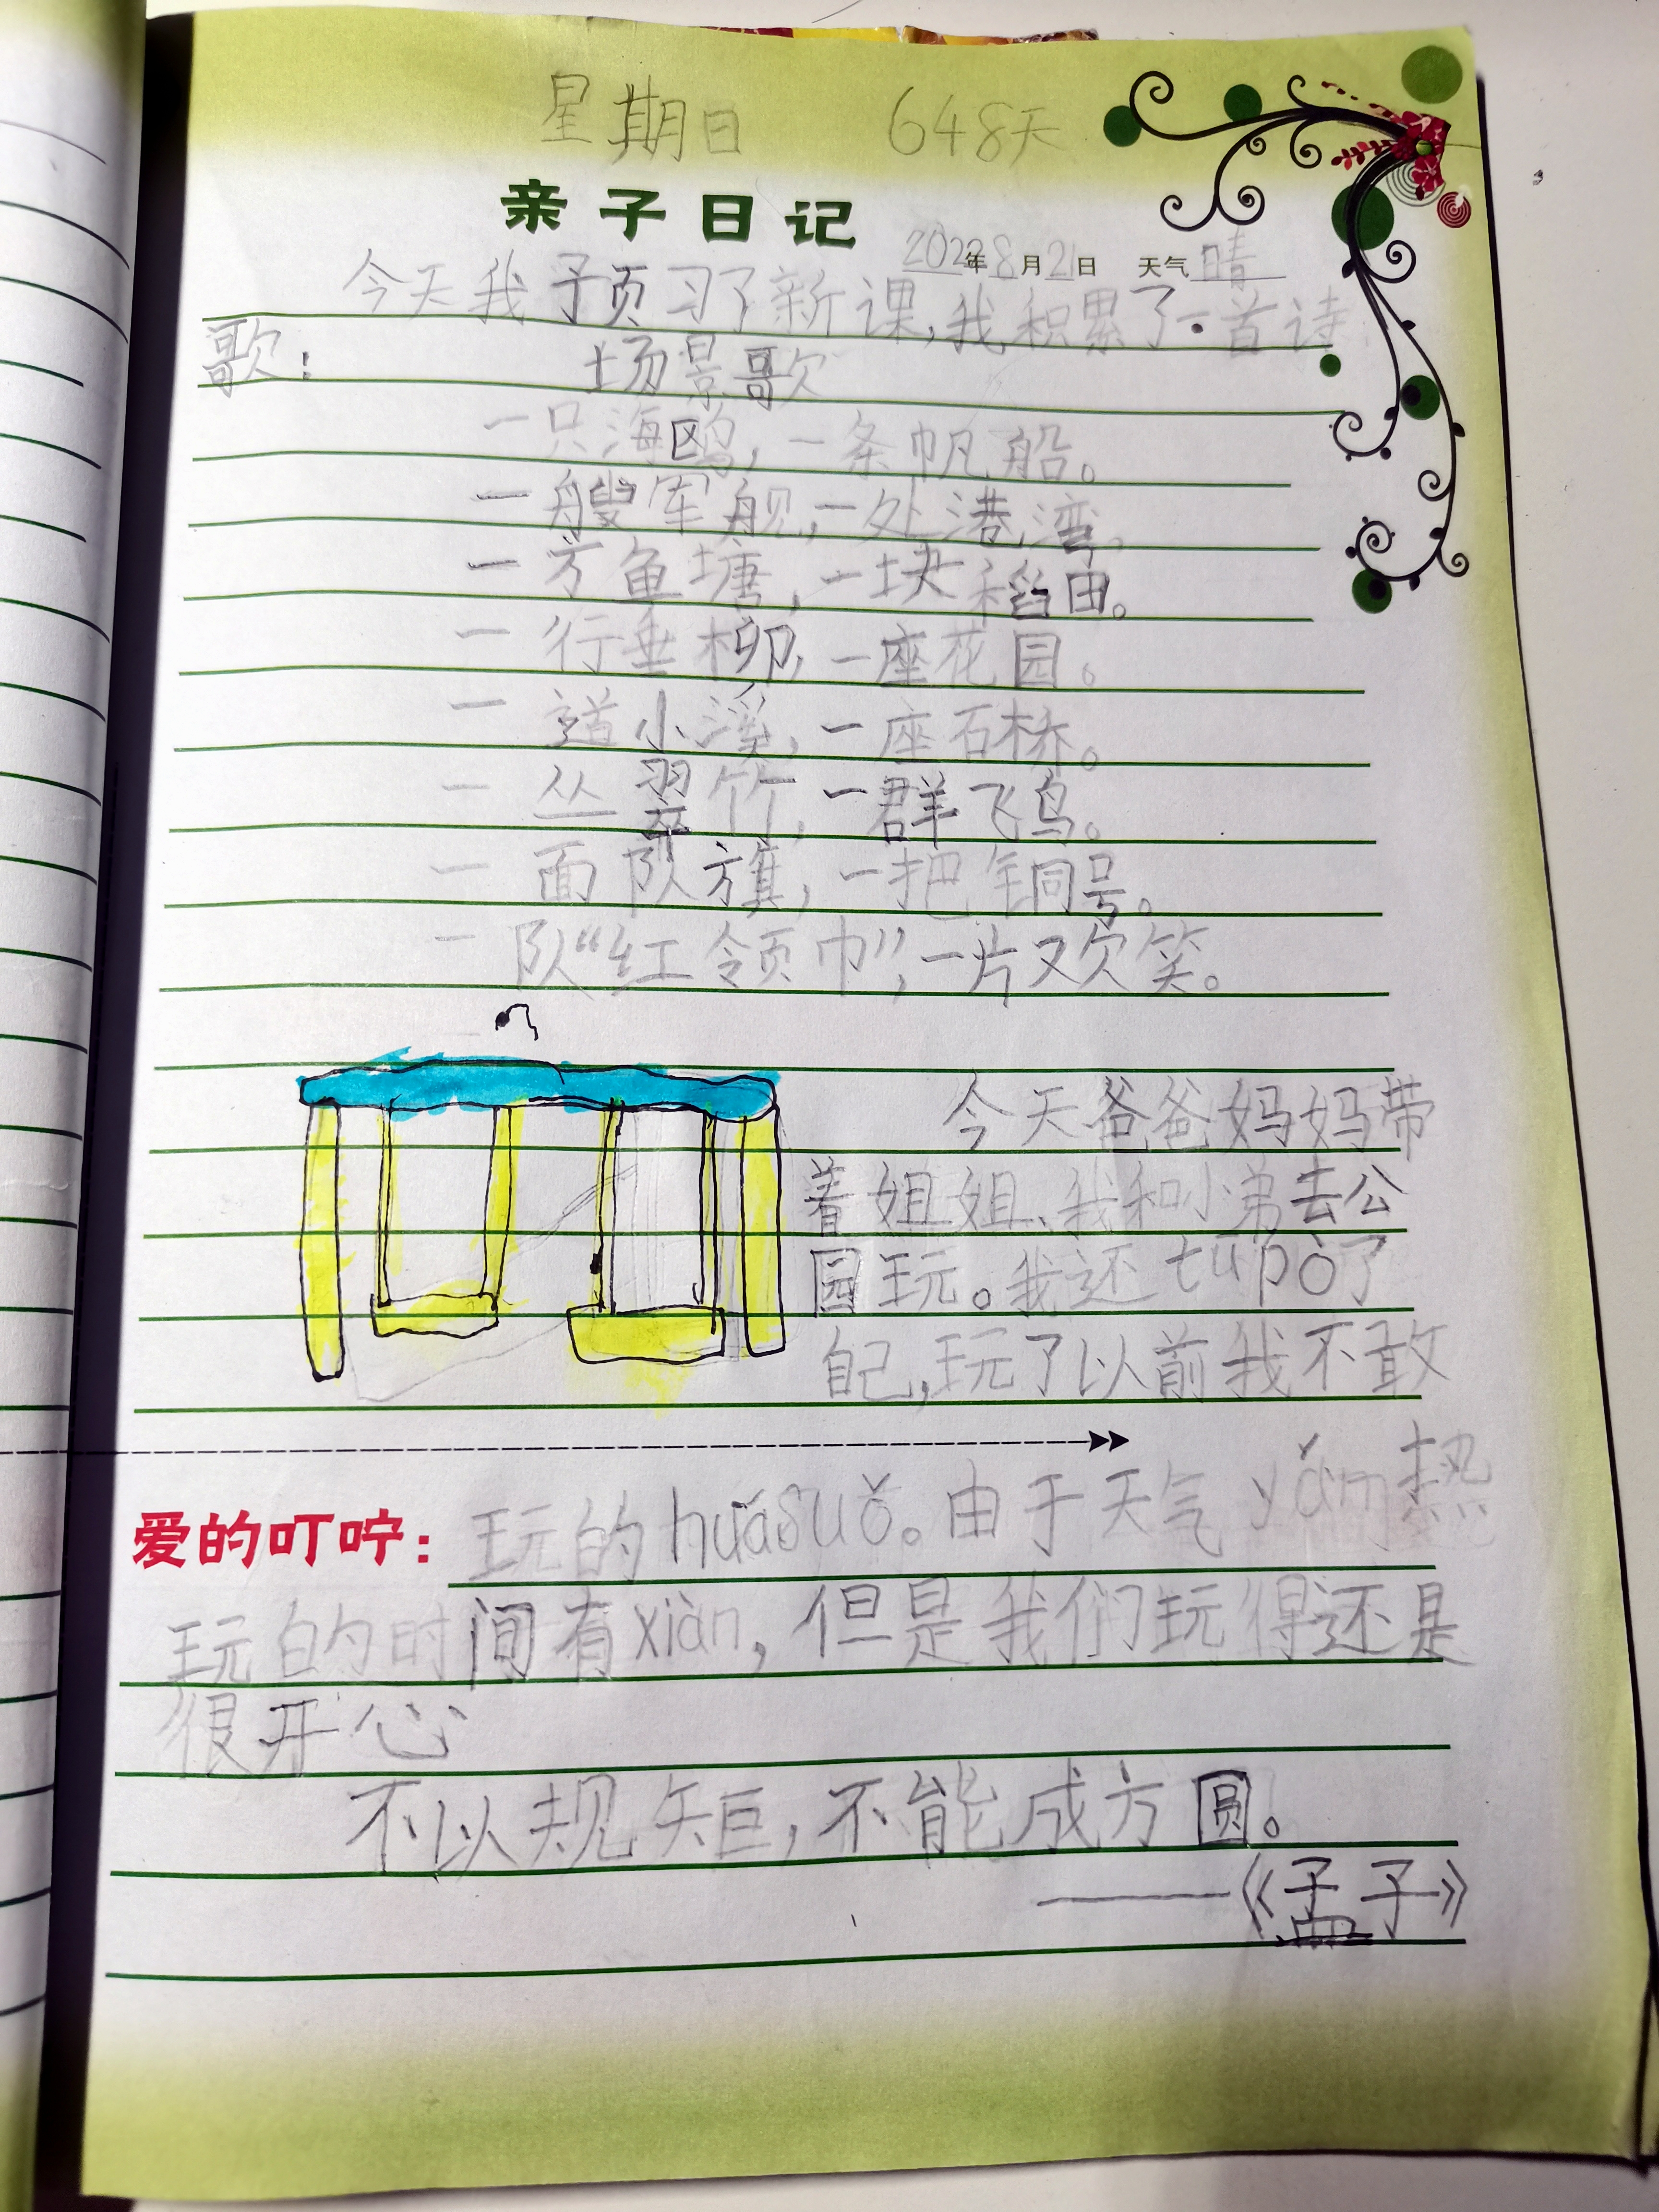 星期日 648天
亲子日记
2022年8月21日 天气晴
今天我预习了新课,我积累了一首诗
歌:
场景歌
一只海鸥,一条帆船。
一艘军舰,一处港湾。
一方鱼塘,一块稻田。
一行垂柳,一座花园。
一道小溪,一座石桥。
一丛翠竹,一群飞鸟。
一面队旗,一把铜号。
一队“红领巾”,一片欢笑。
今天爸爸妈妈带
着姐姐、我和小弟去公
园玩。我还tūpò了
自己,玩了以前我不敢
爱的叮咛:
玩的huásuǒ。由于天气yǎm热
玩的时间有xiàn,但是我们玩得还是
很开心
不以规矩,不能成方圆。
——《孟子》